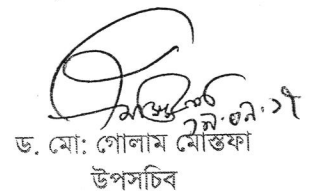 ড. মো: গোলাম মোস্তফা
উপসচিব